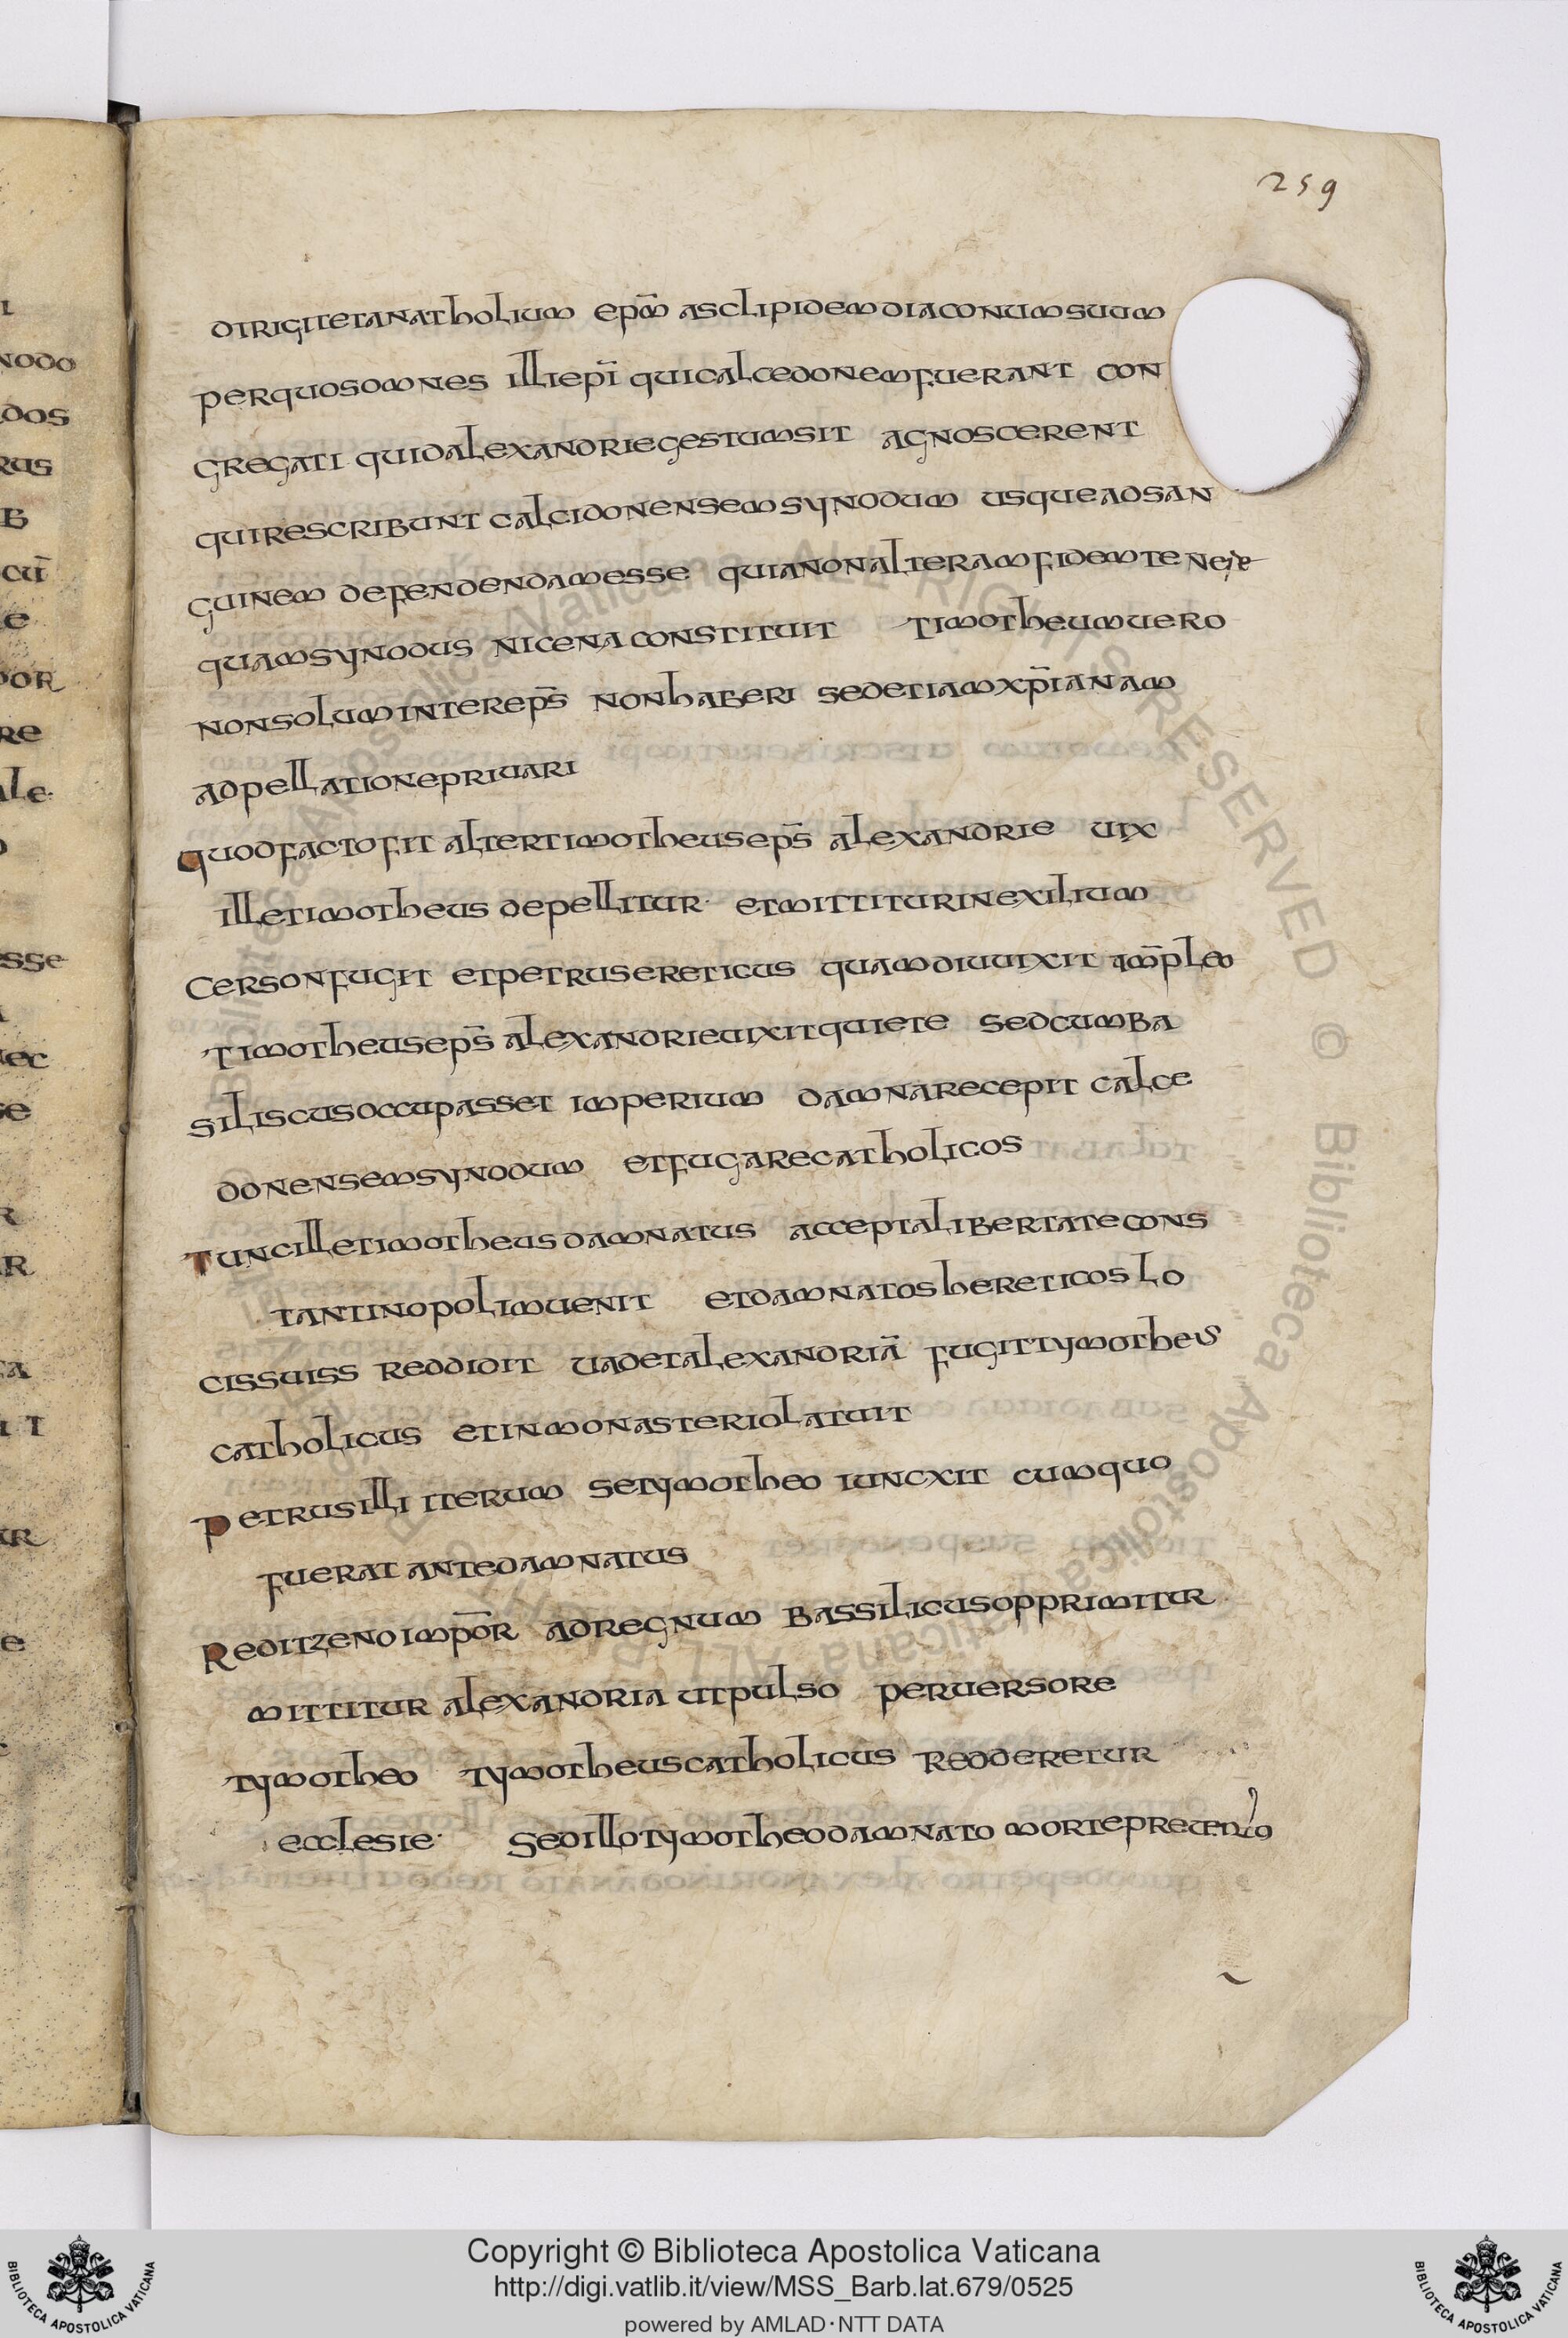 259
dirigitetanatholium ep̄m asclipidemdiaconumsuum
perquosomnes illiepī quicalcedonemfuerant con
gregati quidalexandriegestumsit agnoscerent
quirescribunt calcidonensemsynodum usqueadsan
guinem defendendamesse quianonalteramfidemtenere
quamsynodus nicenaconstituit timotheumuero
nonsoluminterep̄s nonhaberi sedetiamxp̄ianam
adpellationepriuari
quodfactofit altertimotheusep̄s alexandrie uix
illetimotheus depellitur· etmittiturinexilium
cersonfugit etpetrusereticus quamdiuuixit im̄pleo
timotheusep̄s alexandrieuixitquiete sedcumba
siliscusoccupasset imperium damnarecepit calce
donensemsynodum etfugarecatholicos
tuncilletimotheusdamnatus acceptalibertatecons
tantinopolimuenit etdamnatoshereticos lo
cissuiss reddidit uadetalexandriā fugittymotheus
catholicus etinmonasteriolatuit
petrusilli iterum setymotheo iuncxit cumquo
fuerat antedamnatus
reditzenoimp̄or adregnum bassilicusopprimitur
mittitur alexandria utpulso peruersore
tymotheo tymotheuscatholicus redderetur
ecclesie· sedillotymotheodamnato mortepreuento
Copyright © Biblioteca Apostolica Vaticana
http://digi.vatlib.it/view/MSS_Barb.lat.679/0525
powered by AMLAD·NTT DATA